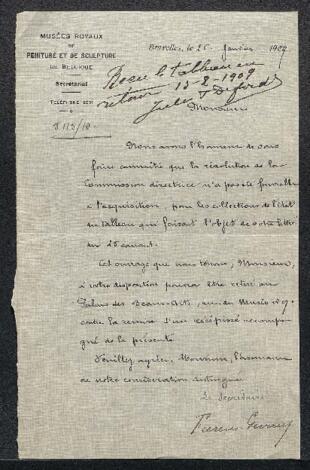 MUSÉES ROYAUX
DE
PEINTURE ET DE SCULPTURE
DE BELGIQUE
Secrétariat
Bruxelles, le 26 Janvier 1909
Reçu le tableau en
retour 13-2-1909
Jules
Monsieur
Nous avons l'honneur de vous
faire connaître que la résolution de la
Commission directrice n'a pas été favorable
à l'acquisition, pour les collections de l'état
du tableau qui faisait l'objet de votre lettre
du 25 courant.
Cet ouvrage que nous tenons, Monsieur,
à votre disposition pourra être retiré au
Palais des Beaux-Arts, rue du Musée n° 9
contre la remise d'un récépissé accompa-
gné de la présente.
Veuillez agréer, Monsieur, l'hommage
de notre considération distinguée
Le Secrétaire